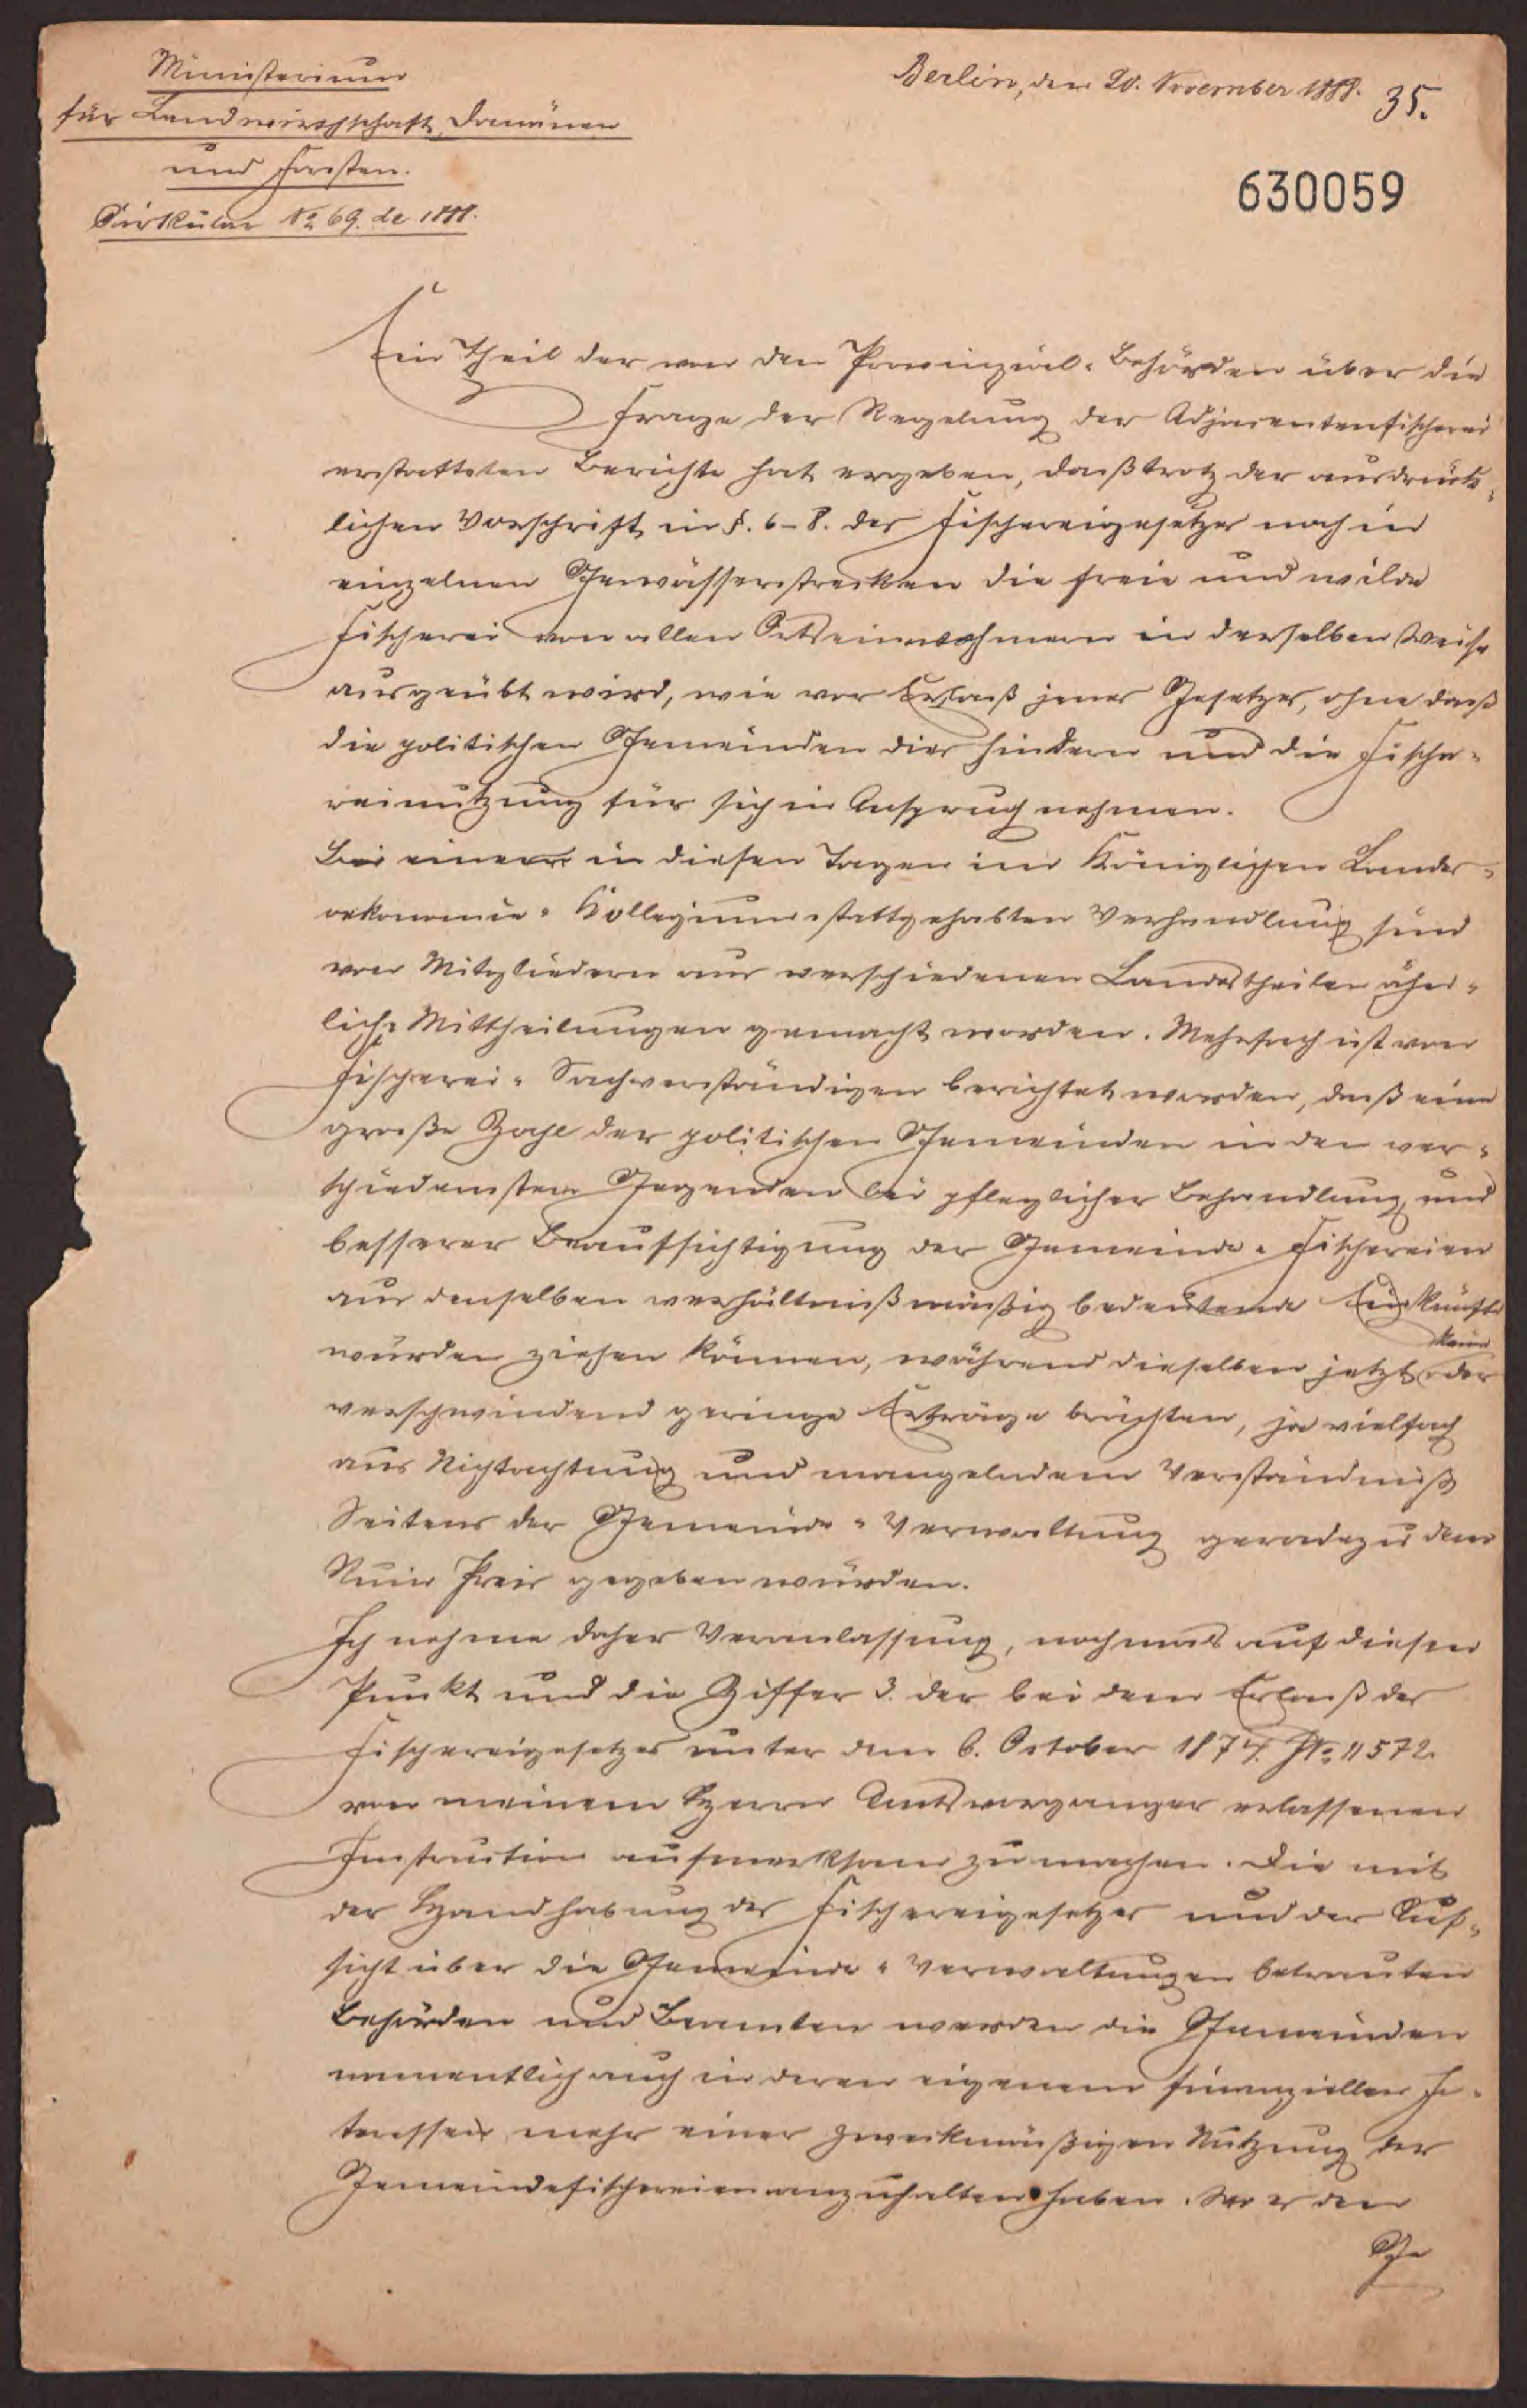 Ministerium
für Landwirthschaft, Domänen
und Forsten.
Cirkular No 69. de 1888.
Berlin, den 20. November 1888.
35.
630059
Ein Theil der von den Provinzial-Behörden über die
Frage der Regelung der Adjacentenfischerei
erstatteten Berichte hat ergeben, daß trotz der ausdrück-
lichen Vorschrift in §. 6-8. des Fischereigesetzes noch in
einzelnen Gewässerstrecken die freie und wilde
Fischerei von allen Ortseinwohnern in derselben Weise
ausgeübt wird, wie vor Erlaß jenes Gesetzes, ohne daß
die politischen Gemeinden dies hindern und die Fische-
reinutzung für sich in Anspruch nehmen.
Bei einer in diesen Tagen im Königlichen Landes-
oekonomie-Kollegium stattgehabten Verhandlung sind
von Mitgliedern aus verschiedenen Landestheilen ähn-
liche Mittheilungen gemacht worden. Mehrfach ist von
Fischerei-Sachverständigen berichtet worden, daß eine
große Zahl der politischen Gemeinden in den ver-
schiedensten Gegenden bei pfleglicher Behandlung und
besserer Beaufsichtigung der Gemeinde-Fischereien
aus denselben verhältnißmäßig bedeutende Einkünfte
würden ziehen können, während dieselben jetzt keine oder
verschwindend geringe Erträge brächten, ja vielfach
aus Nichtachtung und mangelndem Verständniß
Seitens der Gemeinde-Verwaltung geradezu dem
Ruin Preis gegeben würden.
Ich nehme daher Veranlassung, nochmals auf diesen
Punkt und die Ziffer 3. der bei dem Erlaß des
Fischereigesetzes unter dem 6. October 1874. No. 11572.
von meinem Herrn Amtsvorgänger erlassenen
Instruction aufmerksam zu machen. Die mit
der Handhabung des Fischereigesetzes und der Auf-
sicht über die Gemeinde-Verwaltungen betrauten
Behörden und Beamten werden die Gemeinden
namentlich auch in deren eigenem finanziellen In-
teressen mehr einer zweckmäßigen Nutzung der
Gemeindefischereien anzuhalten haben. Wo es den
Ge